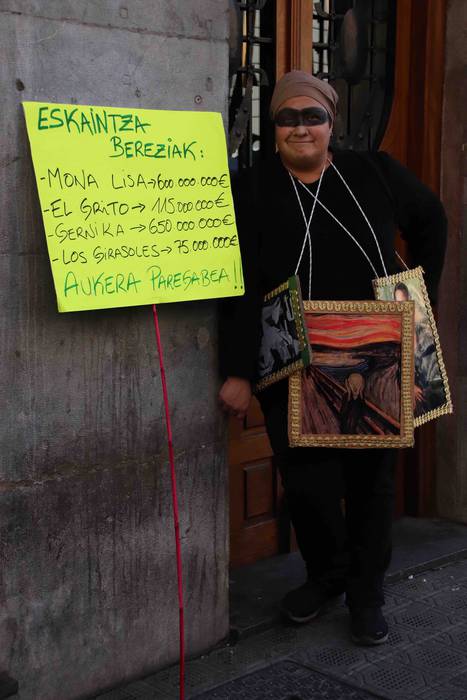 ESKAINTZA
BEREZIAK:
-MONA LISA→600.000.000€
-EL GRITO→115000000€
-GERNIKA→650.000.000€
-LOS GIRASOLES→75.000.000€
AUKERA PAREGABEA!!